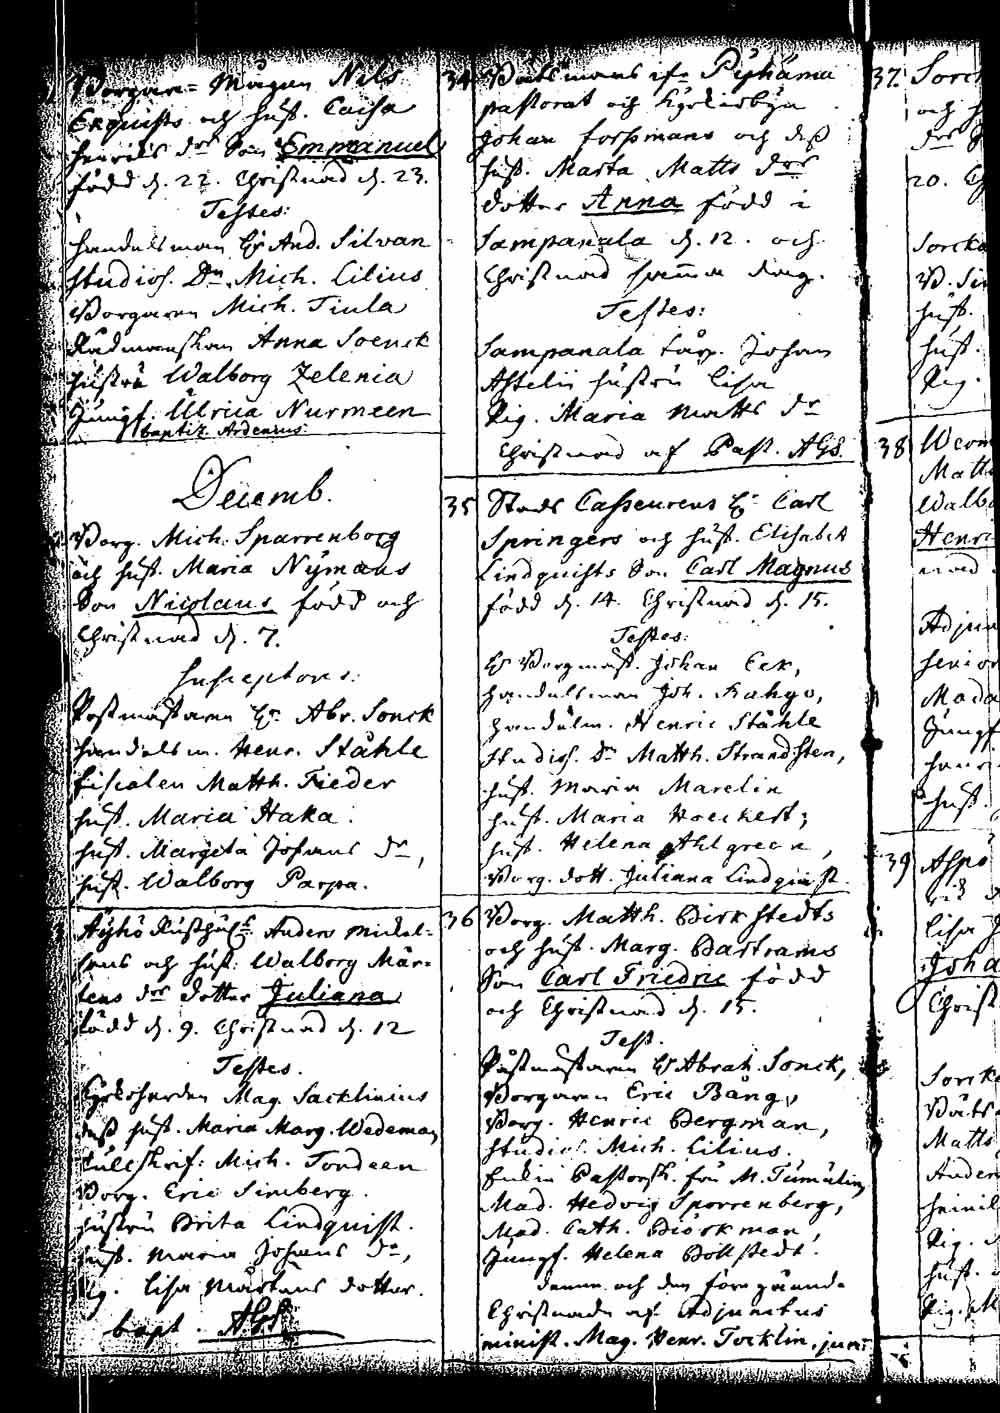 Borgare= Mågen Nils
Exquists och hust. Caisa
Henrics drs Son Emmanuel
född d. 22. Christnad d. 23.
Testes:
Handelsman Hr And. Silvan
Studios. Dn Mich. Lilius
Borgaren Mich. Tiula
Rådmanskan Anna Soenck
Hustru Walborg Zelenia
Jungf. Ulrica Nurmeen
baptiz. Ardenius.
Decemb.
Borg. Mich. Sparrenborg
och hust. Maria Nymans
Son Nicolaus född och
Christnad d. 7.
Susceptores:
Postmästaren Hr Abr. Sonck
Handelsm. Henr. Ståhle
Fiscalen Matth. Fieder
hust. Maria Haka.
hust. Margeta Johans dr,
hust. Walborg Parpa.
Äyhö Anders Mickel-
sons och hust. Walborg Mår-
tens drs dotter Juliana
född d. 9. Christnad d. 12
Testes.
Kyrkoherden Mag. Sacklinius
dess hust. Maria Marg. Wedeman
Tullskrif. Mich. Tordeen
Borg. Eric Simberg.
hustru Brita Lindquist.
hust. Maria Johans dr,
Pig. Lisa Mårtens dotter.
bapt. AGS.
34 Båtsmans ifr Pyhäma
pastorat och Kyrkiobyn
Johan Forssmans och dess
hust. Marta Matts drs
dotter Anna född i
Sampanala d. 12. och
Christnad samma dag.
Testes:
Sampanala torp. Johan
Astelin hustru Lisa
Pig. Maria Matts dr
Christnad af Past. AGS.
35 Stads Casseurens Hr Carl
Springers och hust. Elisabet
Lindquists Son Carl Magnus
född d. 14. Christnad d. 15.
Testes:
Hr Borgmäst. Johan Eek,
Handelsman Joh. Kahgo,
Handelm. Henric Ståhle
Studios. Dn Matth. Strandsten,
hust. Maria Marelin
hust. Maria Hoeckert;
hust. Helena Ahlgreen,
Borg. dott. Juliana Lindquist.
36 Borg. Matth. Birkstedts
och hust. Marg. Bartrams
Son Carl Friedric född
och Christnad d. 15.
Test.
Postmästaren Hr Abrah. Sonck,
Borgaren Eric Bång,
Borg. Henric Bergman,
Studios. Mich. Lilius.
Enkie Pastorsk. fru M. Tumulin,
Mad. Hedvig Sporrenberg,
Mad. Cath. Biörkman,
Jungf. Helena Bollstedt.
denna och den föregåend.
Christnade af Adjunctus
minist. Mag. Henr. Tocklin, jun:
37. Sorck
och h
20. Ch
Sorcka
B. Sim
hust.
hust.
Pig.
38 Weom
Matts
Walbo
Henri
nad
Adjun
Senior
Mada
Jungf
hust.
39 Aspö
Lisa h
Joha
Christ
Sorcka
Båts
Matts
Anders
Pig.
hust.
Pig. M